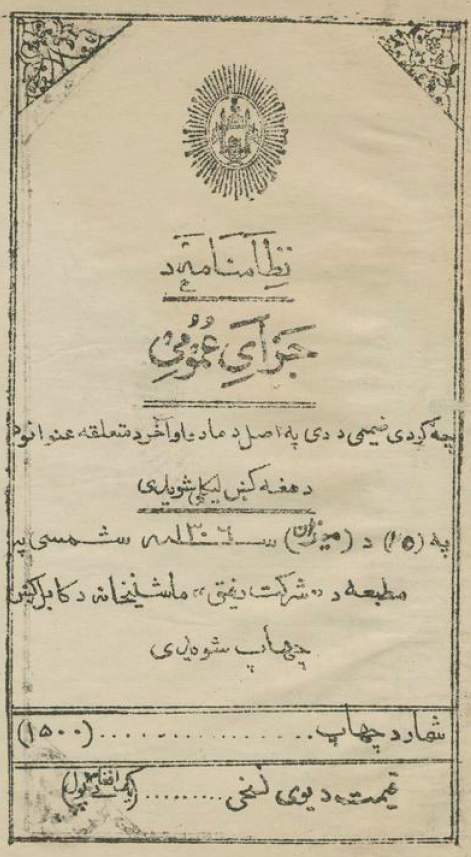 نظامنامه د
جزای عمومی
چه گردی ضیمی د دی په اصل د مادو او آخر د متعلقه عنوانو
د هغه کښ لیکلی شویدی
په (۱۵) د (میزان) ســ۱۳۰۶ـنه شمسی په
مطبعه د «شرکت رفیق» ماشینخانه د کابل کښ
چهاپ شویدی
شمار د چهاپ ................ (۱۵۰۰)
قیمت د یوی نسخی .........